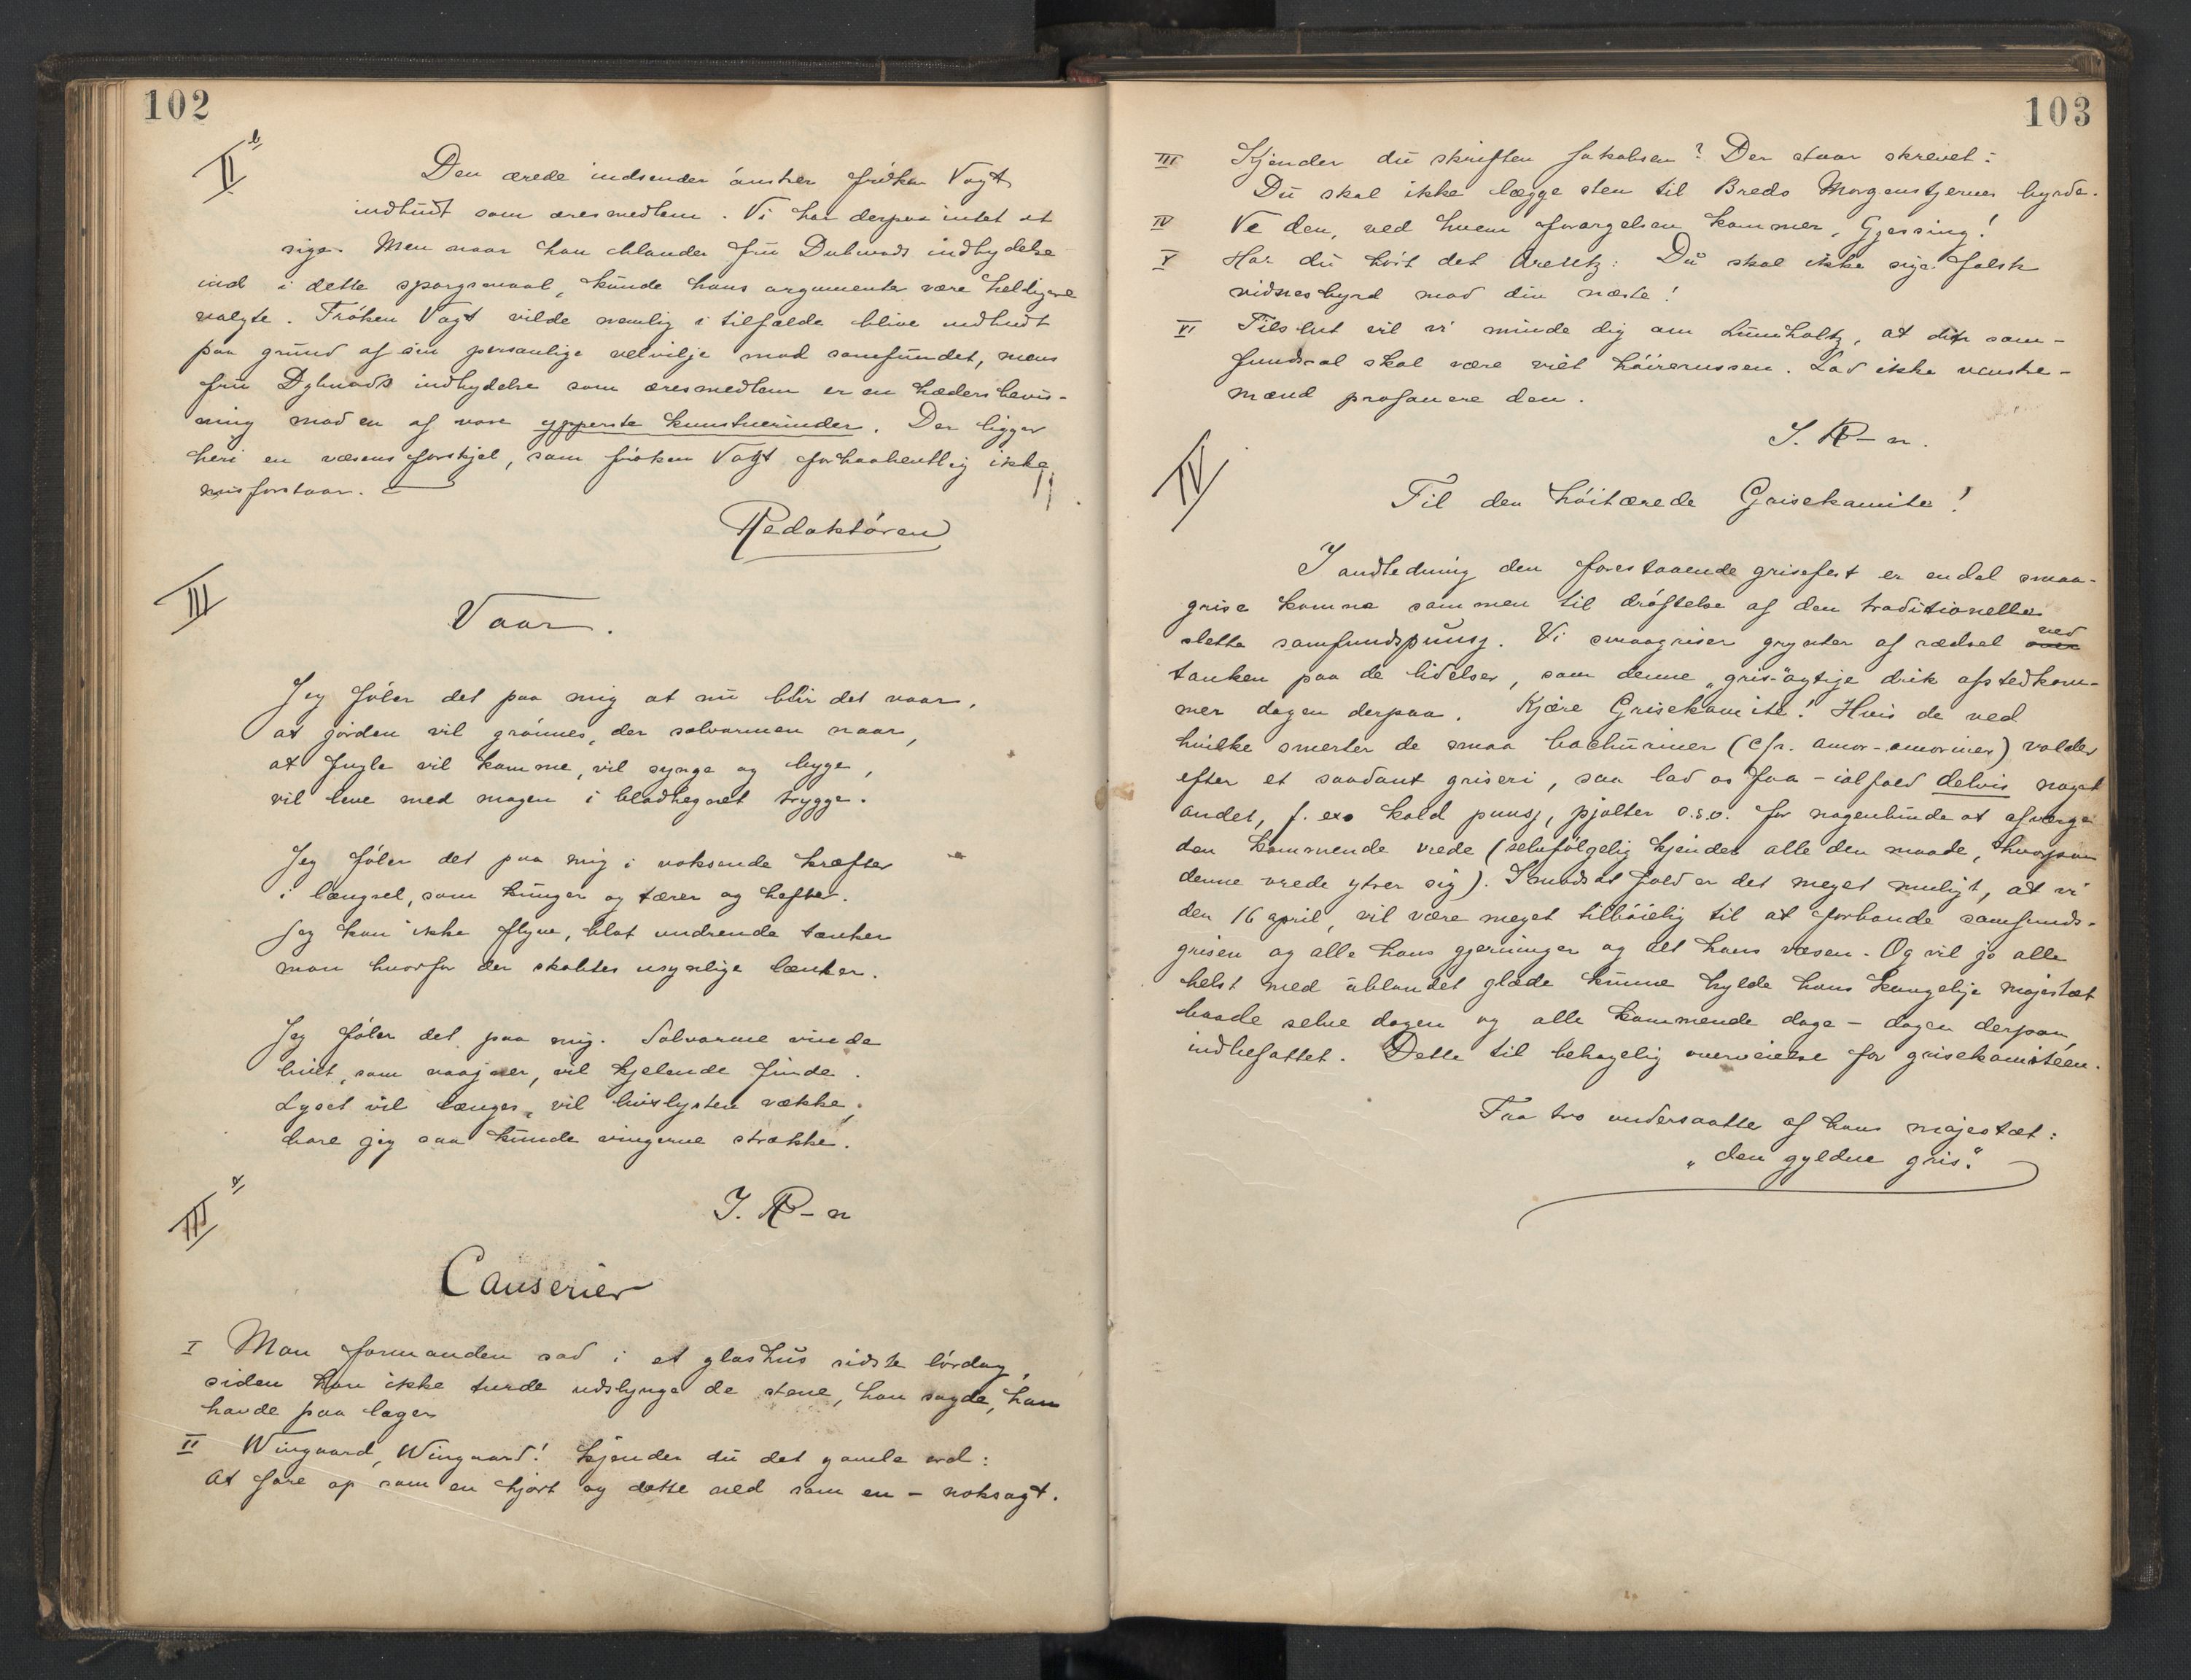 102
II b
Den ærede indsender ønsker frøken Vogt
indbudt som æresmedlem. Vi har derpaa intet at
sige. Men naar han blander fru Dybwads indbydelse
ind i dette spørgsmaal, kunde hans argumenter være heldigere
valgte. Frøken Vogt vilde nemlig i tilfælde blive indbudt
paa grund af sin personlige velvilje mod samfundet, mens
fru Dybwads indbydelse som æresmedlem er en hædersbevis-
ning mod en af vore ypperste kunstnerinder. Der ligger
heri en væsensforskjel, som frøken Vogt forhaabentlig ikke
misforstaar.
Redaktøren
III
Vaar.
Jeg føler det paa mig at nu blir det vaar,
at jorden vil grønnes, der solvarmen naar,
at fugle vil komme, vil synge og bygge,
vil leve med magen i bladhegnet trygge.
Jeg føler det paa mig i voksende kræfter
i længsel, som hunger og tærer og hefter.
Jeg kan ikke flyve, blot undrende tænker
mon hvorfor der skabtes usynlige lænker.
Jeg føler det paa mig. Solvarme vinde
hvilt, som vaagner, vil kjelende finde.
Lyset vil længes, vil livslysten vække,
bare jeg saa kunde vingerne strække.
J. R-n
III a
Causerier
I Mon formanden sad i et glashus sidste lørdag,
siden han ikke turde udslynge de stene, han sagde, han
havde paa lager
II Wingaard, Wingaard! Kjender du det gamle ord:
At fare op som en hjort og dætte ned som en – noksagt.
103
III Kjender du skriften Jakobsen? Der staar skrevet:
Du skal ikke lægge sten til Bredo Morgenstjernes byrde.
IV Ve den, ved hvem forargelsen kommer, Gjessing!
V Har du hørt det Arentz: Du skal ikke sige falsk
vidnesbyrd mod din næste!
VI Tilslut vil vi minde dig om Lumholtz, at dit sam-
fundssal skal være viet høirerussen. Lad ikke venstre-
mænd profanere den.
J. R-n.
IV
Til den høitærede Grisekomite!
I andledning den forestaaende grisefest er endel smaa-
grise komne sammen til drøftelse af den traditionelle
slette samfundspunsj. Vi smaagriser grynter af rædsel over ved
tanken paa de lidelser, som denne „gris"agtige drik afstedkom-
mer dagen derpaa. Kjære Grisekomite! Hvis de ved
hvilke smerter de smaa bachuriner (cfr. amor-amoriner) volder
efter et saadant griseri, saa lad os faa – ialfald delvis noget
andet, f. ex. kold punsj, pjolter o.s.v. for nogenlunde at afværge
den kommende vrede (selvfølgelig kjender alle den maade, hvorpaa
denne vrede ytrer sig). I modsat fald er det meget muligt, at vi
den 16 april, vil være meget tilbøielig til at forbande samfunds-
grisen og alle hans gjerninger og alt hans væsen. Og vil jo alle
helst med ublandet glæde kunne hylde hans kongelige majestæt
baade selve dagen og alle kommende dage – dagen derpaa
indbefattet. Dette til behagelig overveielse for grisekomitéen.
Faa tro undersaatter af hans majestæt:
„den gyldne gris."